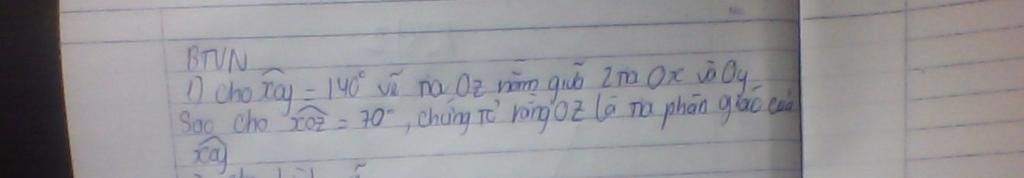 BTVN
1) cho xOy = 140° vẽ tia Oz nằm giữa 2 tia Ox và Oy
Sao cho xOz = 70°, chứng tỏ rằng OZ là tia phân giác của
xOy